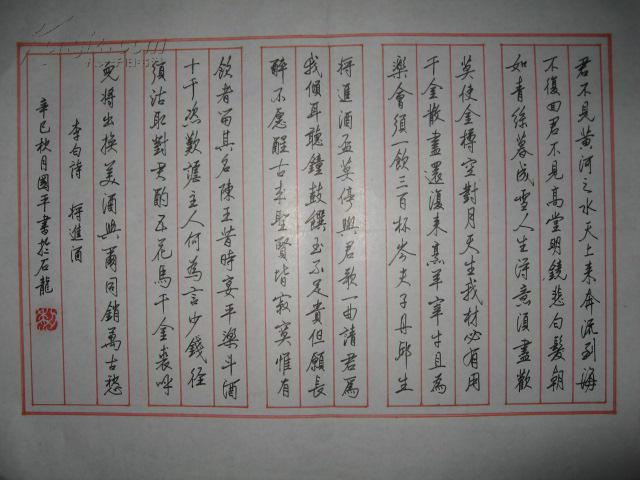 君不見黃河之水天上來奔流到海
不復回君不見高堂明鏡悲白髮朝
如青絲暮成雪人生得意須盡歡
莫使金樽空對月天生我材必有用
千金散盡還復來烹羊宰牛且為
樂會須一飲三百杯岑夫子丹邱生
將進酒盃莫停與君歌一曲請君爲
我傾耳聽鐘鼓饌玉不足貴但願長
醉不愿醒古來聖賢皆寂寞惟有
飲者留其名陳王昔時宴平樂斗酒
十千恣歡謔主人何為言少錢徑
須沽取對君酌五花馬千金裘呼
兒將出換美酒與爾同銷萬古愁
李白詩 將進酒
辛巳秋月國平書於石龍